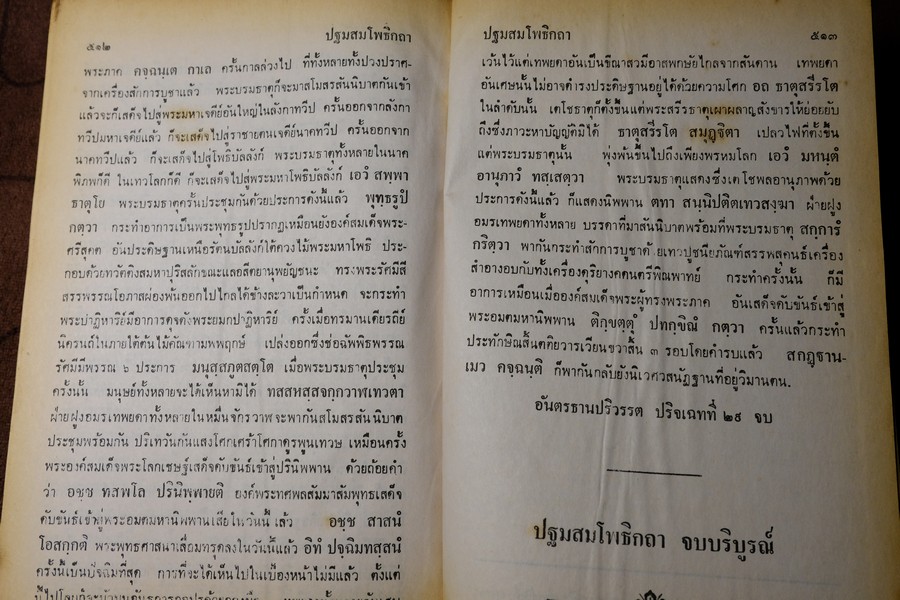 ๕๑๒
ปฐมสมโพธิกถา
พระภาค คจฺฉนฺเต กาเล ครั้นกาลล่วงไป ที่ทั้งหลายทั้งปวงปราศ-
จากเครื่องสักการบูชาแล้ว พระบรมธาตุก็จะมาสโมสรสันนิบาตกันเข้า
แล้วจะก็เสด็จไปสู่พระมหาเจดีย์อันใหญ่ในลังกาทวีป ครั้นออกจากลังกา
ทวีปมหาเจดีย์แล้ว ก็จะเสด็จไปสู่ราชายตนเจดีย์นาคทวีป ครั้นออกจาก
นาคทวีปแล้ว ก็จะเสด็จไปสู่โพธิบัลลังก์ พระบรมธาตุทั้งหลายในนาค
พิภพก็ดี ในเทวโลกก็ดี ก็จะเสด็จไปสู่พระมหาโพธิบัลลังก์ เอวํ สพฺพา
ธาตุโย พระบรมธาตุครั้นประชุมกันด้วยประการดังนี้แล้ว พุทฺธรูปํ
กตฺวา กระทำอาการเป็นพระพุทธรูปปรากฏเหมือนยังองค์สมเด็จพระ-
ศรีสุคต อันประดิษฐานเหนือรัตนบัลลังก์ใต้ควงไม้พระมหาโพธิ ประ-
กอบด้วยทวดึงสมหาปุริสลักขณะแลอสีตยานุพยัญชนะ ทรงพระรัศมีสี
สรรพรรณโอภาสผ่องพ้นออกไปไกลได้ข้างละวาเป็นกำหนด จะกระทำ
พระปาฏิหาริย์มีอาการดุจดังพระยมกปาฏิหาริย์ ครั้งเมื่อทรมานเดียรถีย์
นิครนถ์ในภายใต้ต้นไม้คัณฑามพพฤกษ์ เปล่งออกซึ่งช่อฉัพพิธพรรณ
รัศมีมีพรรณ ๖ ประการ มนุสฺสภูตสตฺโต เมื่อพระบรมธาตุประชุม
ครั้งนั้น มนุษย์ทั้งหลายจะได้เห็นหามิได้ ทสสหสฺสจกฺกวาฬเทวตา
ฝ่ายฝูงอมรเทพยดาทั้งหลายในหมื่นจักรวาฬจะพากันสโมสรสันนิบาต
ประชุมพร้อมกัน ปริเทวันกันแสงโศกเศร้าโศกาดูรพูนเทวษ เหมือนครั้ง
พระองค์สมเด็จพระโลกเชษฐ์เสด็จดับขันธ์เข้าสู่ปรินิพพาน ด้วยถ้อยคำ
ว่า อชฺช ทสพโล ปรินิพฺพายติ องค์พระทศพลสัมมาสัมพุทธเสด็จ
ดับขันธ์เข้าสู่พระอมตมหานิพพานเสียในวันนี้แล้ว อชฺช สาสนํ
โอสกฺกติ พระพุทธศาสนาเสื่อมทรุดลงในวันนี้แล้ว อิทํ ปจฺฉิมทสฺสนํ
ครั้งนี้เป็นปัจฉิมที่สุด การที่จะได้เห็นไปในเบื้องหน้าไม่มีแล้ว ตั้งแต่
ปฐมสมโพธิกถา
๕๑๓
เว้นไว้แต่เทพยดาอันเป็นขีณาสวมีอาสพกษัยไกลจากสันดาน เทพยดา
อันเศษนั้นไม่อาจดำรงประดิษฐานอยู่ได้ด้วยความโศก อถ ธาตุสรีรโต
ในลำดับนั้น เตโชธาตุก็ตั้งขึ้นแต่พระสรีรธาตุเผาผลาญสังขารให้ย่อยยับ
ถึงซึ่งภาวะหาบัญญัติมิได้ ธาตุสรีรโต สมุฏฺฐิตา เปลวไฟที่ตั้งขึ้น
แต่พระบรมธาตุนั้น พุ่งพ้นขึ้นไปถึงเพียงพรหมโลก เอวํ มหนฺตํ
อานุภาวํ ทสฺเสตฺวา พระบรมธาตุแสดงซึ่งเตโชพลอานุภาพด้วย
ประการดังนี้แล้ว ก็แสดงนิพพาน ตทา สนฺนิปติตเทวสงฺฆา ฝ่ายฝูง
อมรเทพยดาทั้งหลาย บรรดาที่มาสันนิบาตพร้อมที่พระบรมธาตุ สกฺการํ
กริตฺวา พากันกระทำสักการบูชาด้วยเทวปูชนียภัณฑ์สรรพสุคนธ์เครื่อง
สำอางอบกับทั้งเครื่องดุริยางคดนตรีพิณพาทย์ กระทำครั้งนั้น ก็มี
อาการเหมือนเมื่อองค์สมเด็จพระผู้ทรงพระภาค อันเสด็จดับขันธ์เข้าสู่
พระอมตมหานิพพาน ติกฺขตฺตุํ ปทกฺขิณํ กตฺวา ครั้นแล้วกระทำ
ประทักษิณสิ้นตติยวารเวียนขวาสิ้น ๓ รอบโดยคำรบแล้ว สกฏฺฐาน-
เมว คจฺฉนฺติ ก็พากันกลับยังนิเวศวสนัฏฐานที่อยู่วิมานตน.
อันตรธานปริวรรต ปริจเฉทที่ ๒๙ จบ
ปฐมสมโพธิกถา จบบริบูรณ์